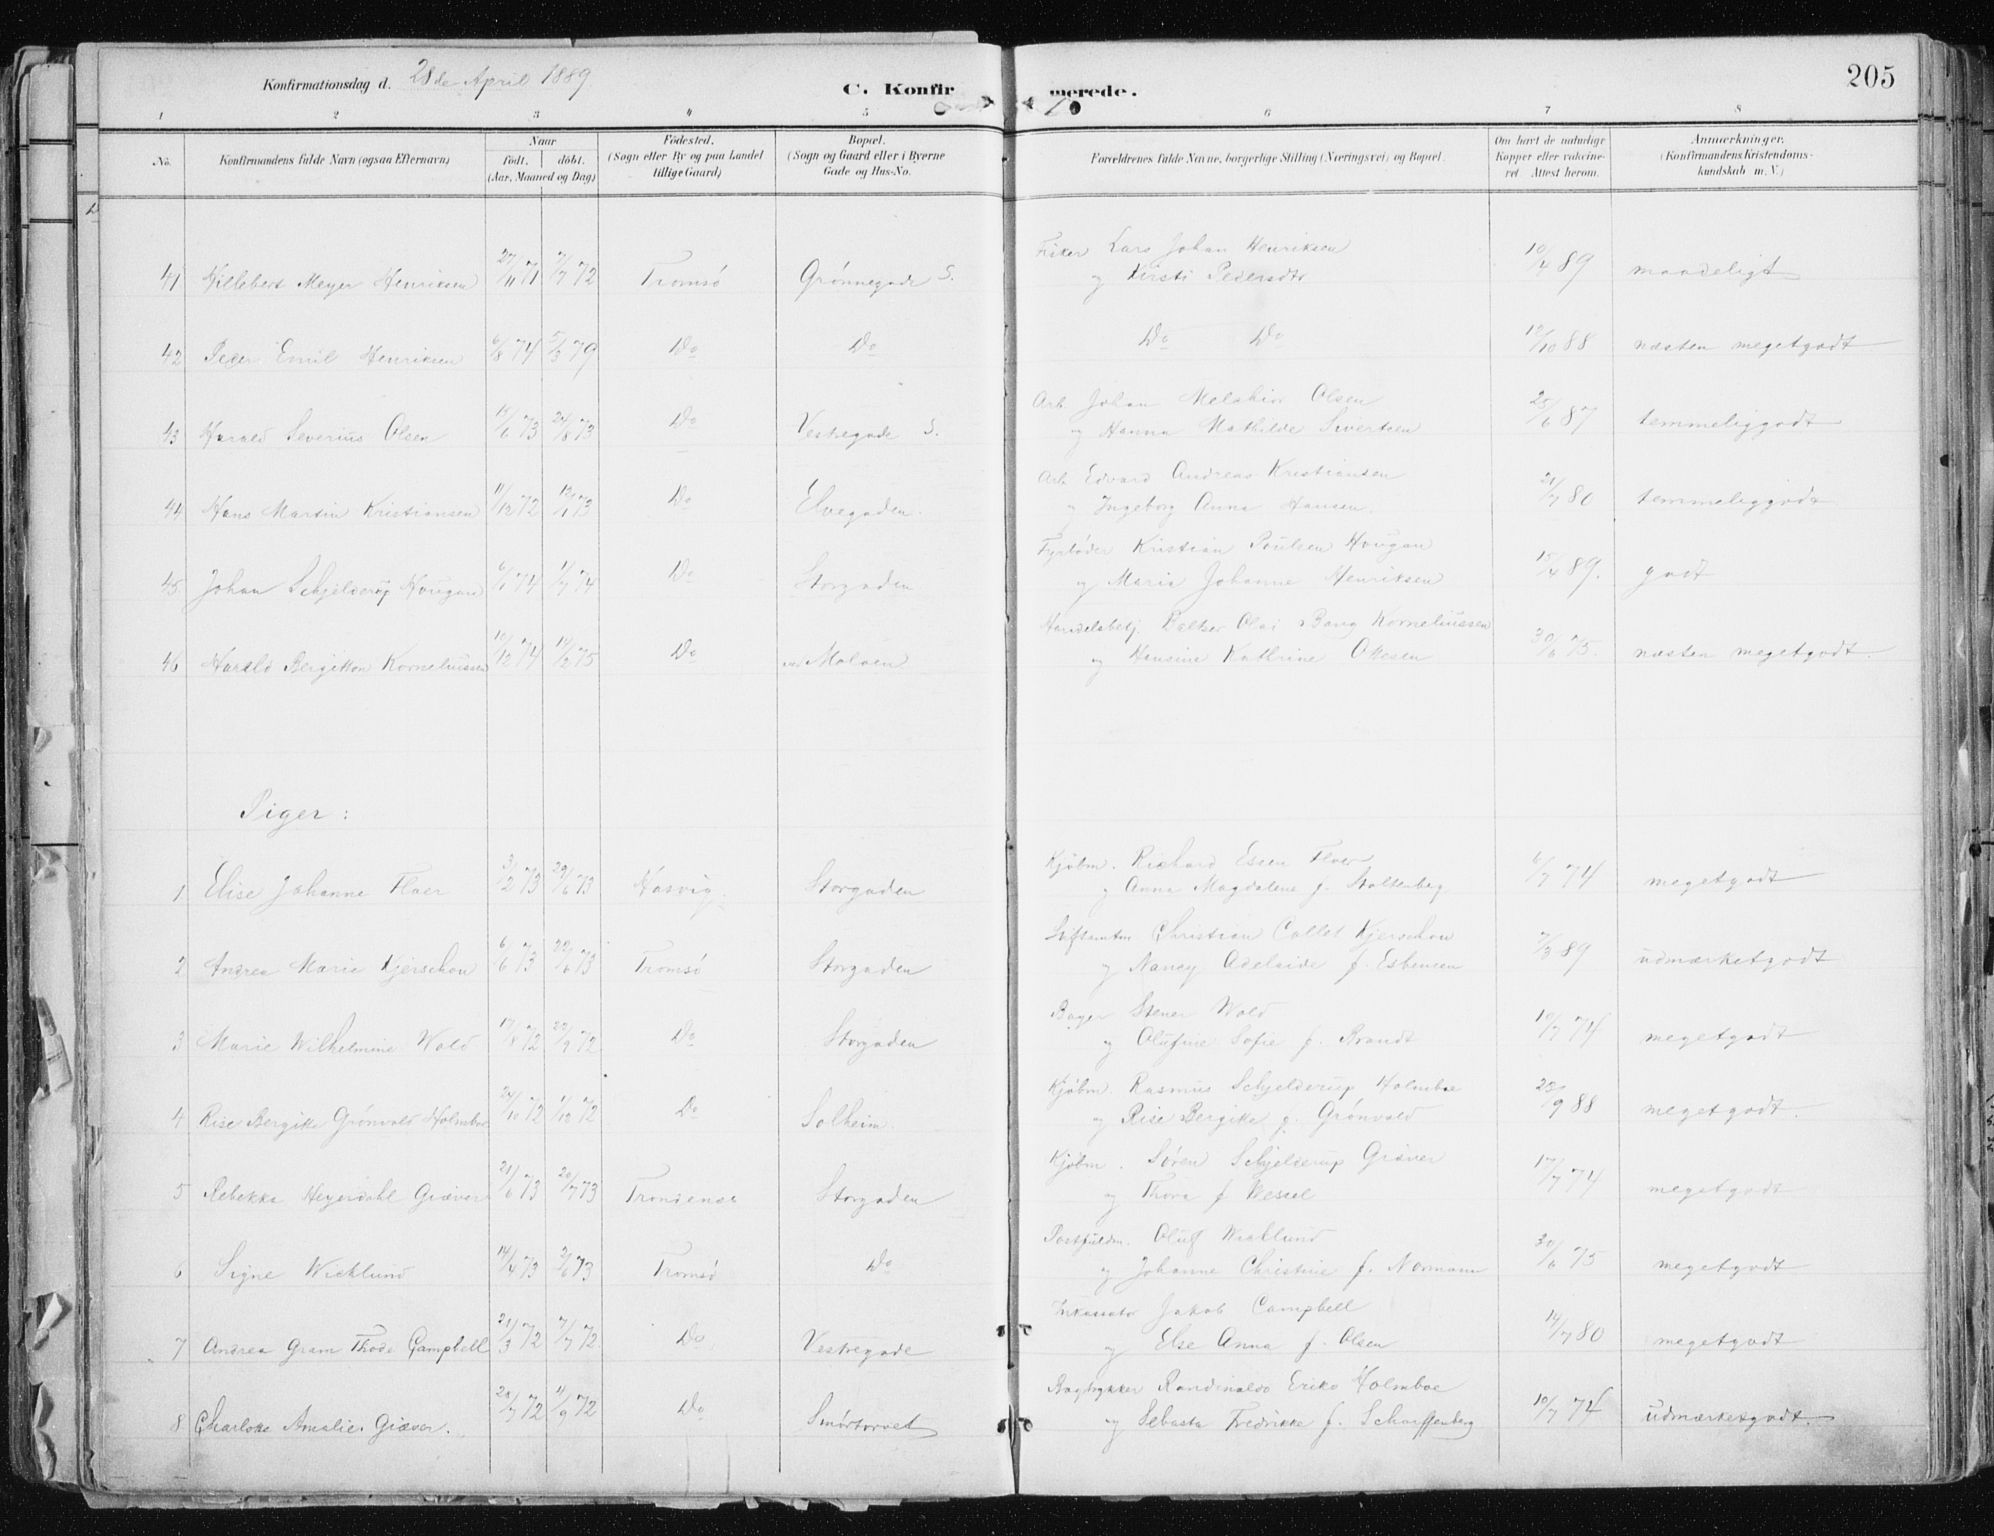 Konfirmationsdag d. 28de April 1889
C. Konfirmerede.
205
1 2 3 4 5 6 7 8
No. Konfirmandens fulde Navn (ogsaa Efternavn) Naar født. døbt. (Aar, Maaned og Dag) Fødested. (Sogn eller By og paa Landet tillige Gaard) Bopæl. (Sogn og Gaard eller i Byerne Gade og Hus-No. Forældrenes fulde Navne, borgerlige Stilling (Næringsvei) og Bopæl. Om havt de naturlige Kopper eller vakcineret. Attest herom. Anmærkninger. (Konfirmandens Kristendomskundskab m. V.)
41 Hillebert Meyer Henriksen 27/11 71 7/7 72 Tromsø Grønnegade S. Fisker Lars Johan Henriksen og Kirsti Pedersdtr 10/4 89 maadeligt
42 Peder Emil Henriksen 6/8 74 5/3 79 Do Do Do Do 12/10 88 næsten megetgodt
43 Harald Severius Olsen 13/6 73 24/8 73 Do Vestregade S. Arb. Johan Melchior Olsen og Hanna Mathilde Sivertsen 25/6 87 temmeliggodt
44 Hans Martin Kristiansen 11/12 72 12/1 73 Do Elvegaden. Arb. Edvard Andreas Kristiansen og Ingeborg Anna Hansen. 21/7 80 temmeliggodt
45 Johan Schjelderup Hougan 6/1 74 1/7 74 Do Storgaden Fyrbøder Kristian Poulsen Hougan og Maria Johanne Henriksen 15/4 89. godt
46 Harald Bergitton Korneliussen 10/12 74 14/2 75 Do ved Moloen Handelsbetj. Baltser Olai Bang Korneliussen og Hansine Kathrine Ottesen 30/6 75. næsten megetgodt.
Piger:
1 Elise Johanne Flaer 3/2 73 29/6 73 Hasvig. Storgaden Kjøbm. Richard Essen Flaer og Anna Magdalene f. Stoltenberg 6/7 74 megetgodt
2 Andrea Marie Kjerschow 6/6 73 22/6 73 Tromsø Storgaden Stiftamtm Christian Collet Kjerschow og Nancy Adelaide f. Esbensen 7/3 89 udmærketgodt
3 Marie Wilhelmine Wold 17/8 72 22/9 72 Do Storgaden Bager Stener Wold og Olufine Sofie f. Brandt 10/7 74 megetgodt
4 Rise Bergitte Grønvold Holmboe 24/10 72 1/12 72 Do Solheim. Kjøbm. Rasmus Schjelderup Holmboe og Rise Bergitte f. Grønvold 28/9 88 megetgodt.
5 Rebekka Heyerdahl Giæver 21/6 73 20/7 73 Trondenes Storgaden Kjøbm. Søren Schjelderup Giæver og Thora f. Wessel 17/7 74 megetgodt
6 Signe Wicklund 14/4 73 2/6 73 Tromsø Do Postfuldm. Oluf Wicklund og Johanne Christine f. Normann 30/6 75 megetgodt
7 Andrea Gram Thode Campbell 21/3 72 7/7 72 Do Vestregade Inkassator Jakob Campbell og Else Anna f. Olsen 14/7 80 megetgodt
8 Charlotte Amalie Giæver. 28/7 72 11/9 72 Do Smørtorvet Bogtrykker Randinaldo Eriko Holmboe og Sebasta Fredrikke f. Scharffenberg 10/7 74 udmærketgodt.